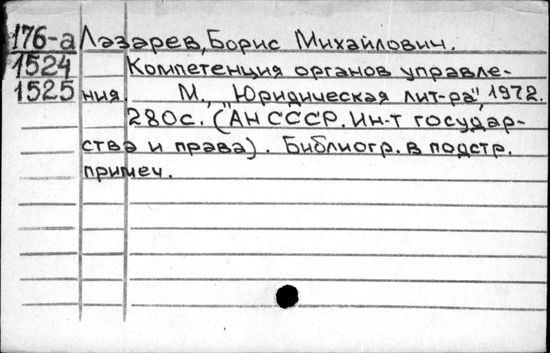 176-а Лазарев, Борис Михайлович.
1524 Компетенция органов управле-
1525 ния. М., "Юридическая лит-ра", 1972.
280с. (АН СССР. Ин-т государ-
ства и права). Библиогр. в подстр.
примеч.